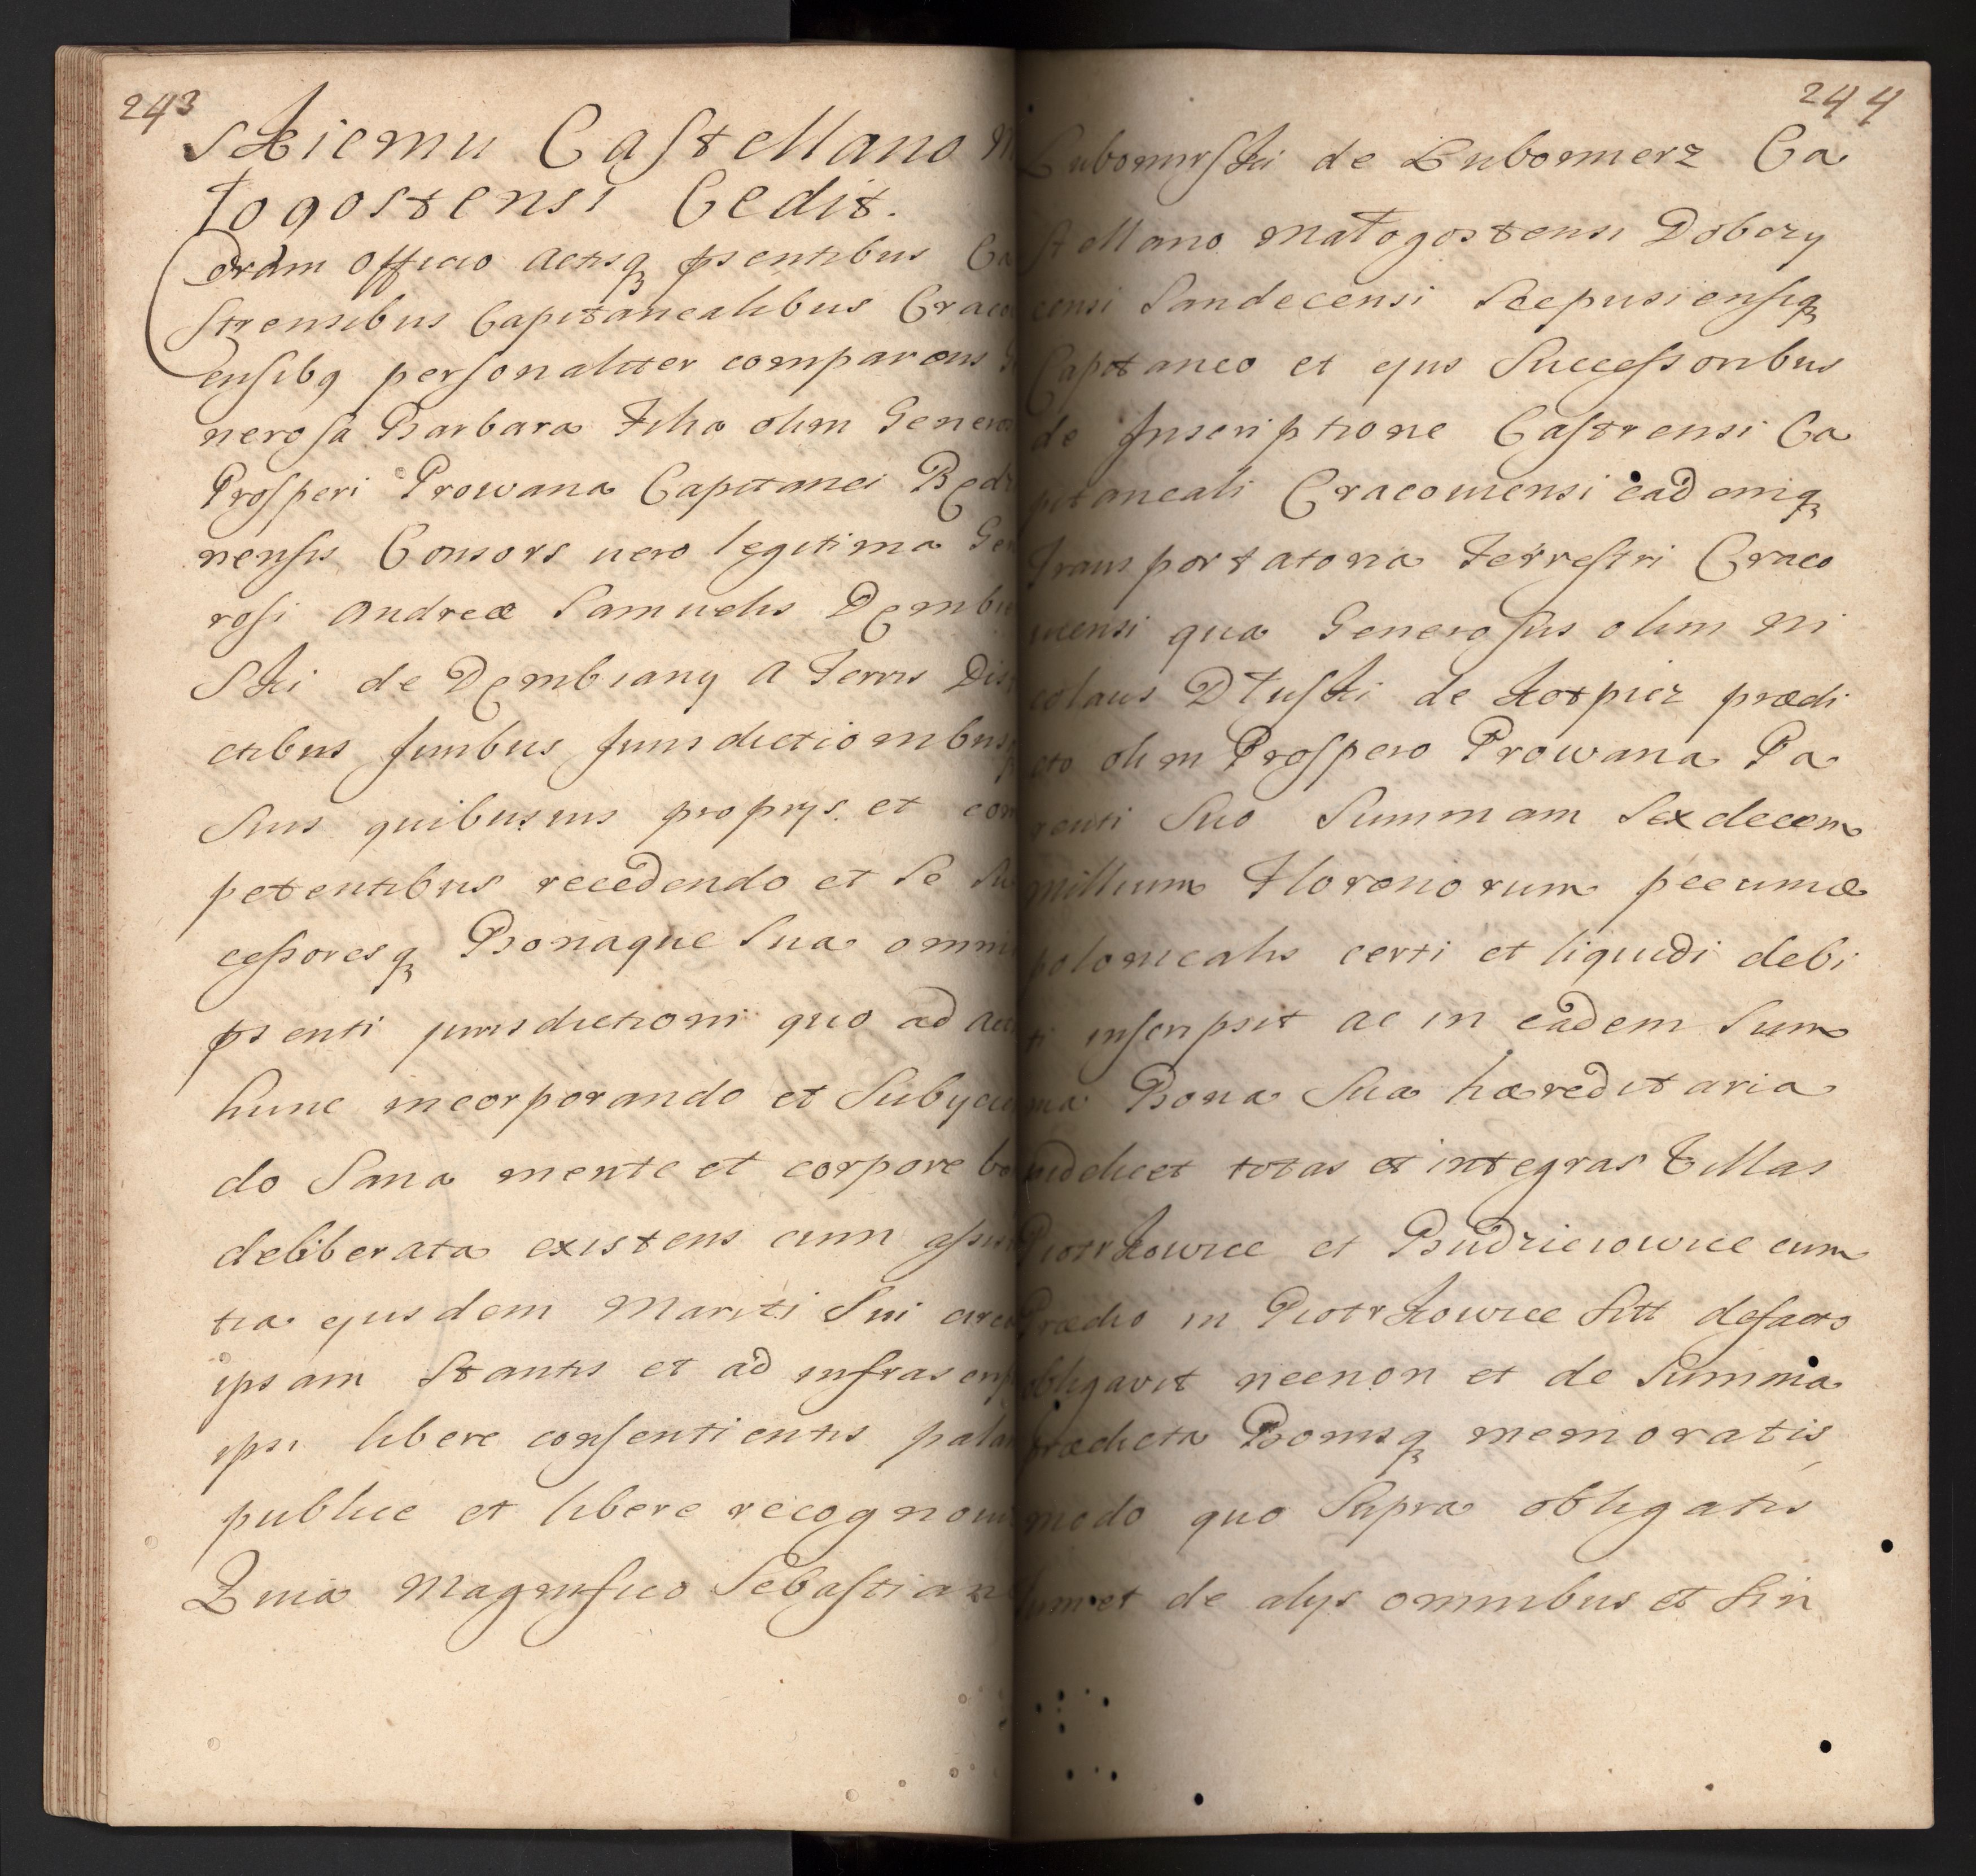 243
skiemu Castellano M
łogostensi Cedit.
Coram Officio Actisq₃ pſentibus Ca
ſtrensibus Capitanealibus Craco
enſibq perſonaliter comparens Ge
neroſa Barbara Filia olim Genero
Proſperi Prowana Capitanei Będz
nenſis Consors uero legitima Gen
roſi Andreæ Samuelis Dembi
Ski de Dembiany A Terris Dis
ctibus Juribus Jurisdictionibus
Suis quibusuis proprys et com
petentibus recedendo et Se Su
ceſsoresq₃ Bonaque Sua omni
pſenti jurisdictioni quo ad Act
hunc incorporando et Subycien
do Sana mente et corpore be
deliberata existens cum aſsis
tia ejusdem Mariti Sui circa
ipsam Stantis et ad infrascrip
ipsi libere conſentientis palam
publice et libere recognouit
Quia Magnifico Sebaſtiano
244
Lubomirſki de Lubomierz Ca
ſtellano Małogostensi Dobczy
censi Sandecensi Scepusienſiq₃
Capitaneo et ejus Succeſsoribus
de Inscriptione Caſtrensi Ca
pitaneali Cracouiensi eademq₃
Transportatoria Terreſtri Craco
uiensi qua Generoſus olim Ni
colaus Dłuſki de Kotpiez prædi
cto olim Proſpero Prowana Pa
renti Suo Summam Sexdecem
millium Florenorum pecuniæ
polonicalis certi et liquidi debi
ti inſcripsit ac in eadem Sum
ma Bona Sua hæreditaria
uidelicet totas et integras Villas
Piotrkowice et Budzieiowice cum
Prædio in Piotrkowice Sitt defacto
obligavit necnon et de Summa
prædicta Bonisq₃ memoratis
modo quo Supra obligatis
tum et de alys omnibus et Sin